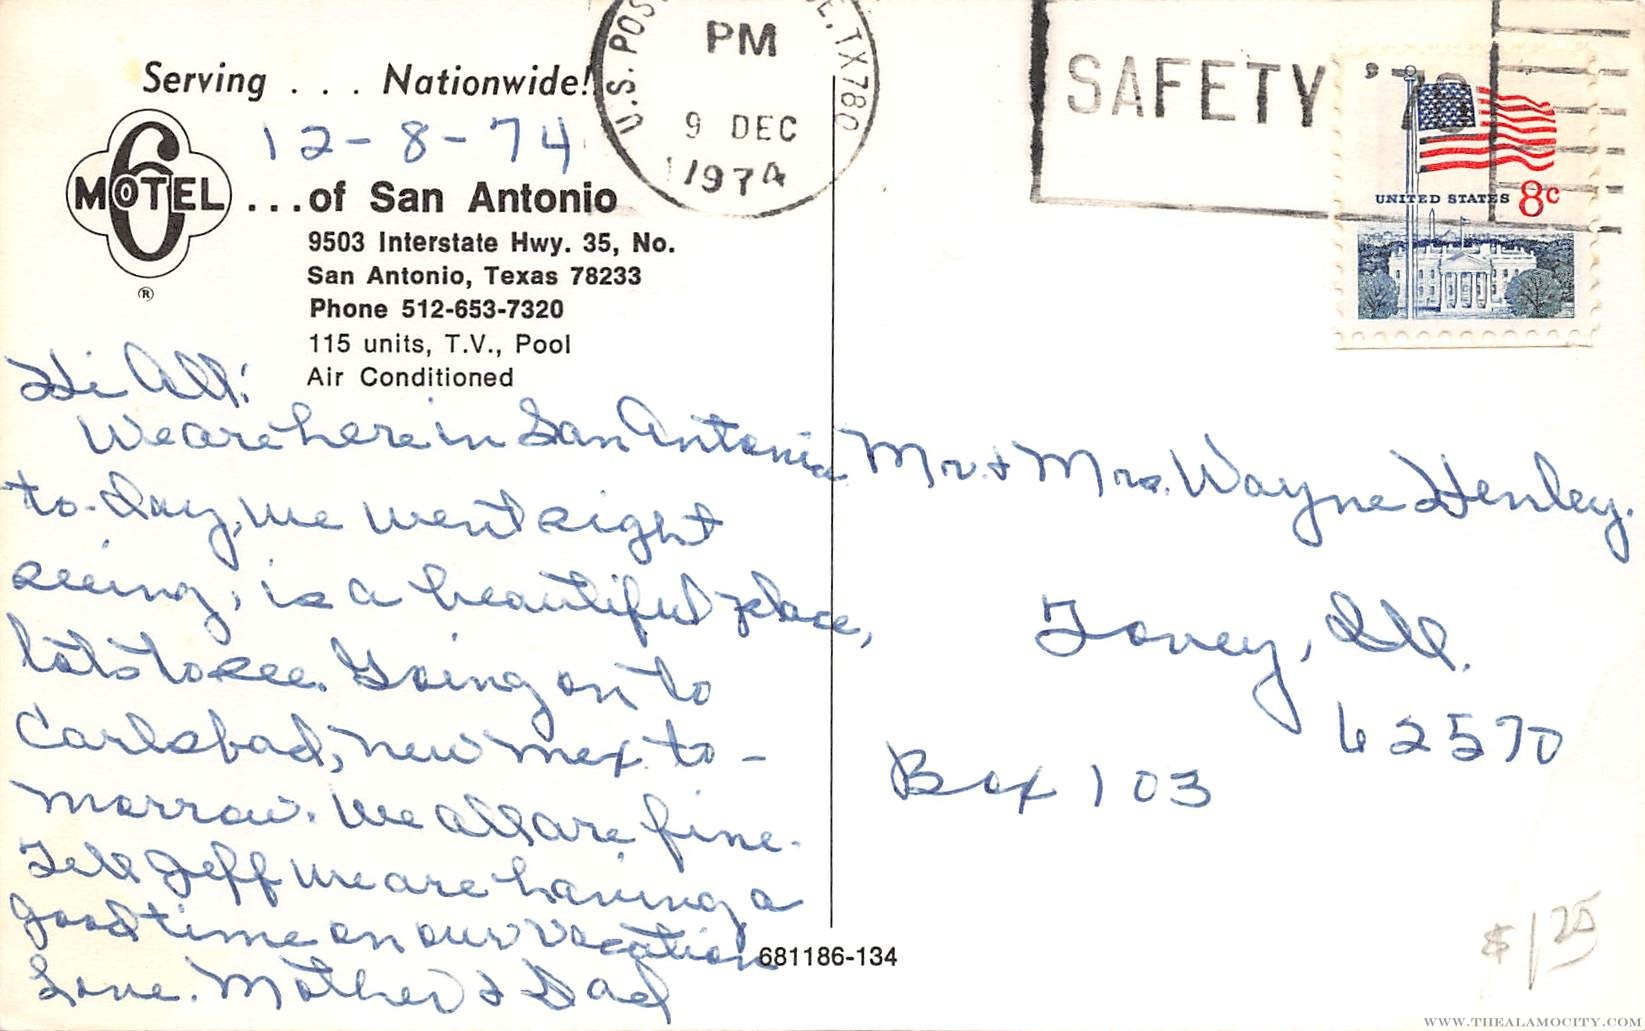 Serving . . . Nationwide!
12-8-74
MOTEL 6
®
...of San Antonio
9503 Interstate Hwy. 35, No.
San Antonio, Texas 78233
Phone 512-653-7320
115 units, T.V., Pool
Air Conditioned
Hi All:
We are here in San Antonio
to-day, we went sight
seeing, is a beautiful place,
lots to see. Going on to
Carlsbad, New Mex. to-
morrow. We all are fine.
Tell Jeff we are having a
good time on our vacation
Love. Mother & Dad
681186-134
U.S. POS
E, TX 780
PM
9 DEC
1974
SAFETY '76
UNITED STATES 8c
Mr. & Mrs. Wayne Henley.
Tovey, Ill.
62570
Box 103
$1.25
WWW.THEALAMOCITY.COM